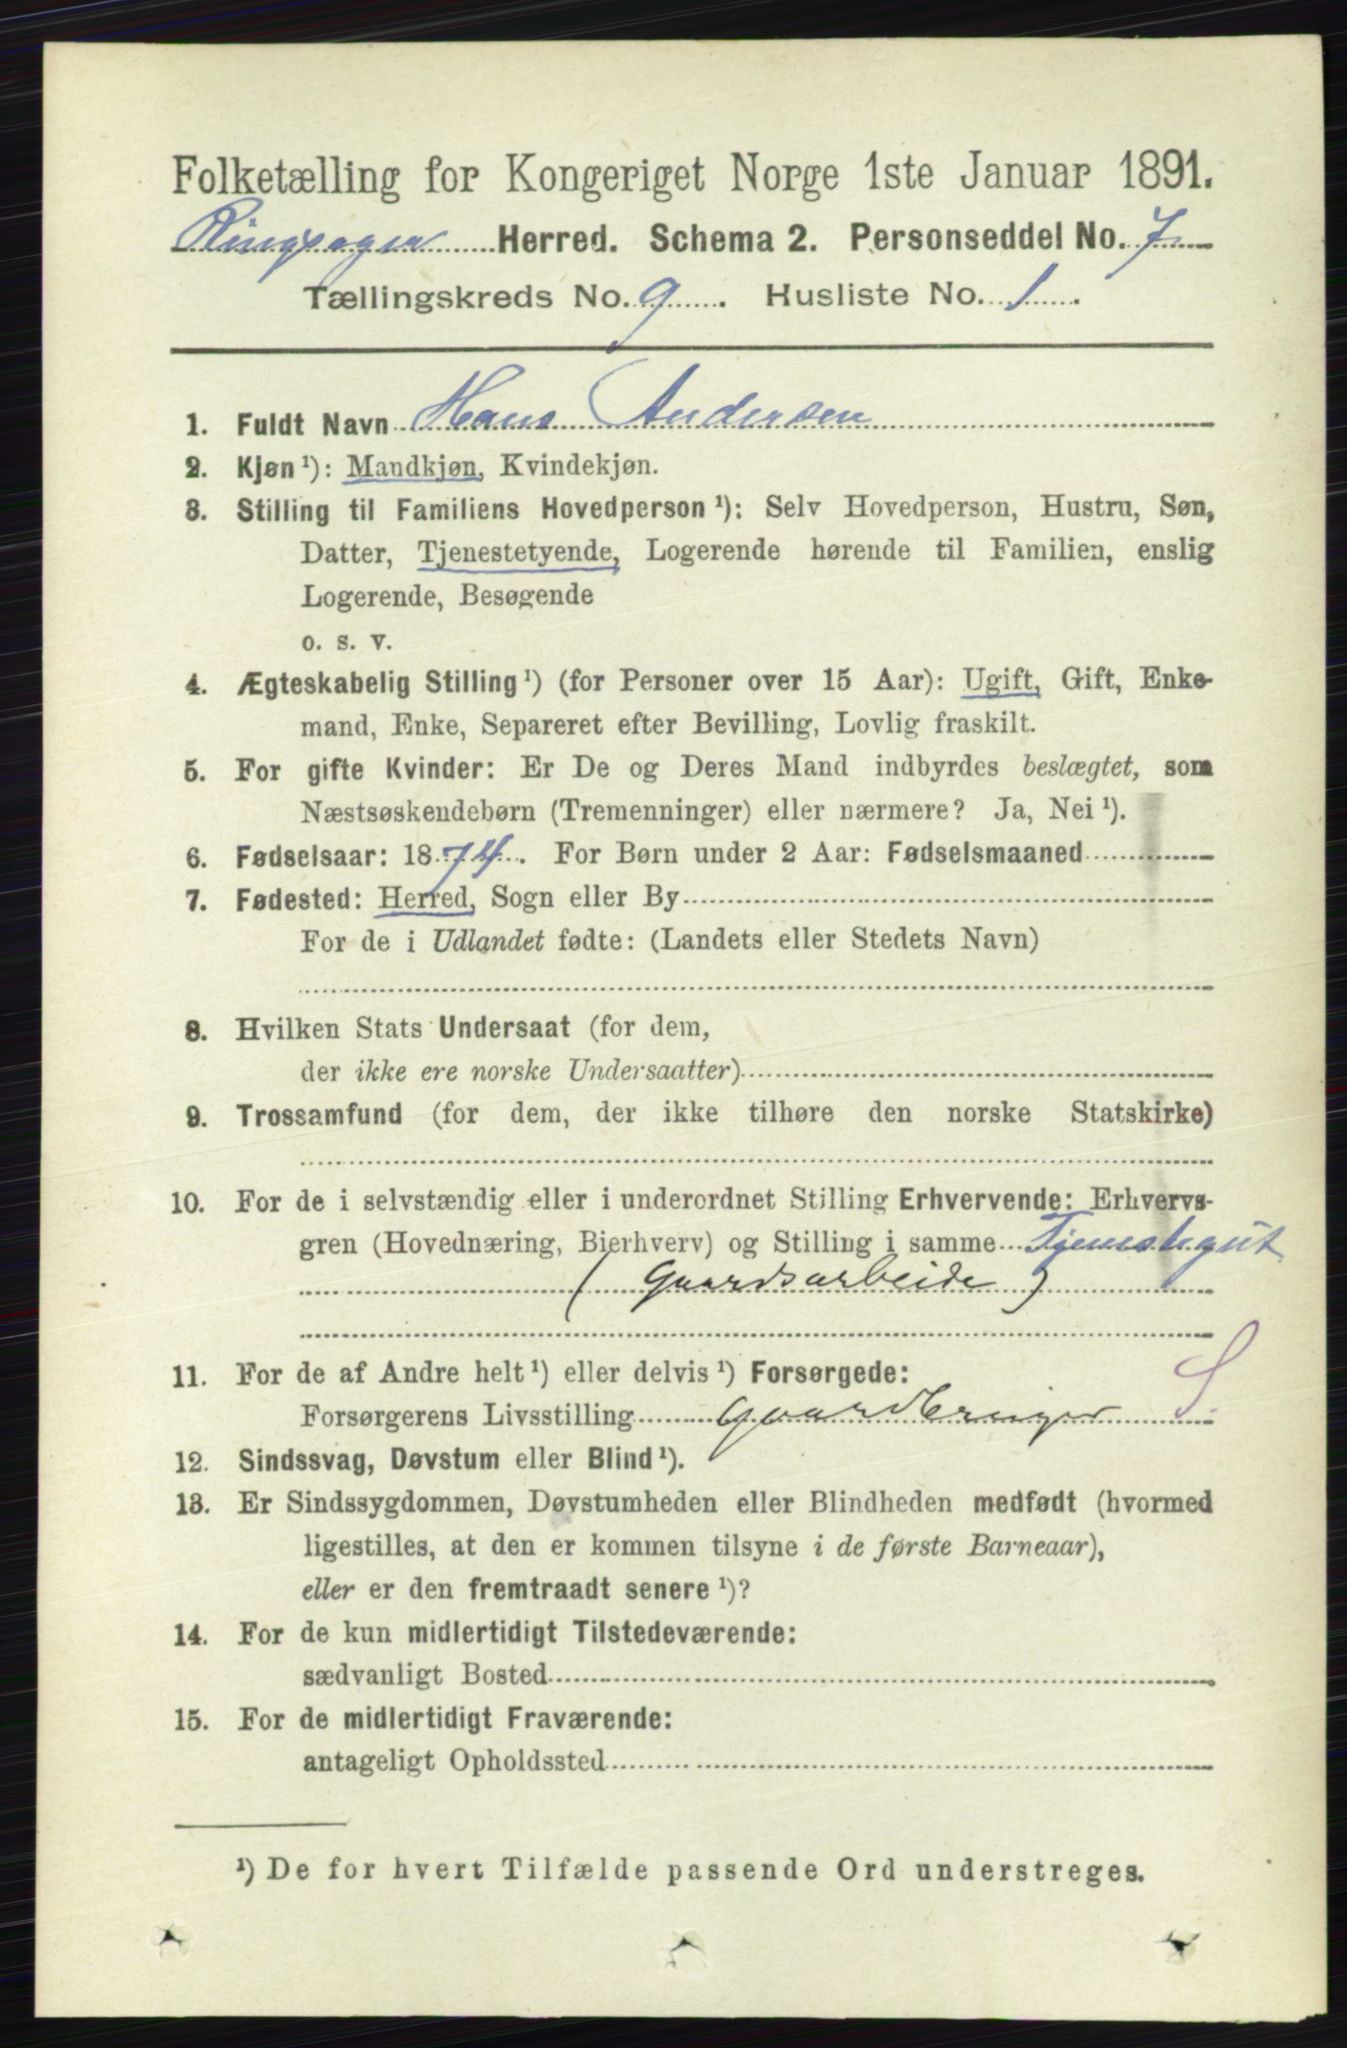 Folketælling for Kongeriget Norge 1ste Januar 1891.
Ringsager Herred. Schema 2. Personseddel No. 7
Tællingskreds No. 9. Husliste No. 1.
1. Fuldt Navn Hans Andersen
2. Kjøn ¹): Mandkjøn, Kvindekjøn.
3. Stilling til Familiens Hovedperson ¹): Selv Hovedperson, Hustru, Søn,
Datter, Tjenestetyende, Logerende hørende til Familien, enslig
Logerende, Besøgende
o. s. v.
4. Ægteskabelig Stilling ¹) (for Personer over 15 Aar): Ugift, Gift, Enke-
mand, Enke, Separeret efter Bevilling, Lovlig fraskilt.
5. For gifte Kvinder: Er De og Deres Mand indbyrdes beslægtet, som
Næstsøskendebørn (Tremenninger) eller nærmere? Ja, Nei ¹).
6. Fødselsaar: 1874. For Børn under 2 Aar: Fødselsmaaned
7. Fødested: Herred, Sogn eller By
For de i Udlandet fødte: (Landets eller Stedets Navn)
8. Hvilken Stats Undersaat (for dem,
der ikke ere norske Undersaatter)
9. Trossamfund (for dem, der ikke tilhøre den norske Statskirke)
10. For de i selvstændig eller i underordnet Stilling Erhvervende: Erhvervs-
gren (Hovednæring, Bierhverv) og Stilling i samme Tjenestegut
(Gaardsarbeide)
11. For de af Andre helt ¹) eller delvis ¹) Forsørgede: S.
Forsørgerens Livsstilling Gaardbruger
12. Sindssvag, Døvstum eller Blind ¹).
13. Er Sindssygdommen, Døvstumheden eller Blindheden medfødt (hvormed
ligestilles, at den er kommen tilsyne i de første Barneaar),
eller er den fremtraadt senere ¹)?
14. For de kun midlertidigt Tilstedeværende:
sædvanligt Bosted
15. For de midlertidigt Fraværende:
antageligt Opholdssted
¹) De for hvert Tilfælde passende Ord understreges.